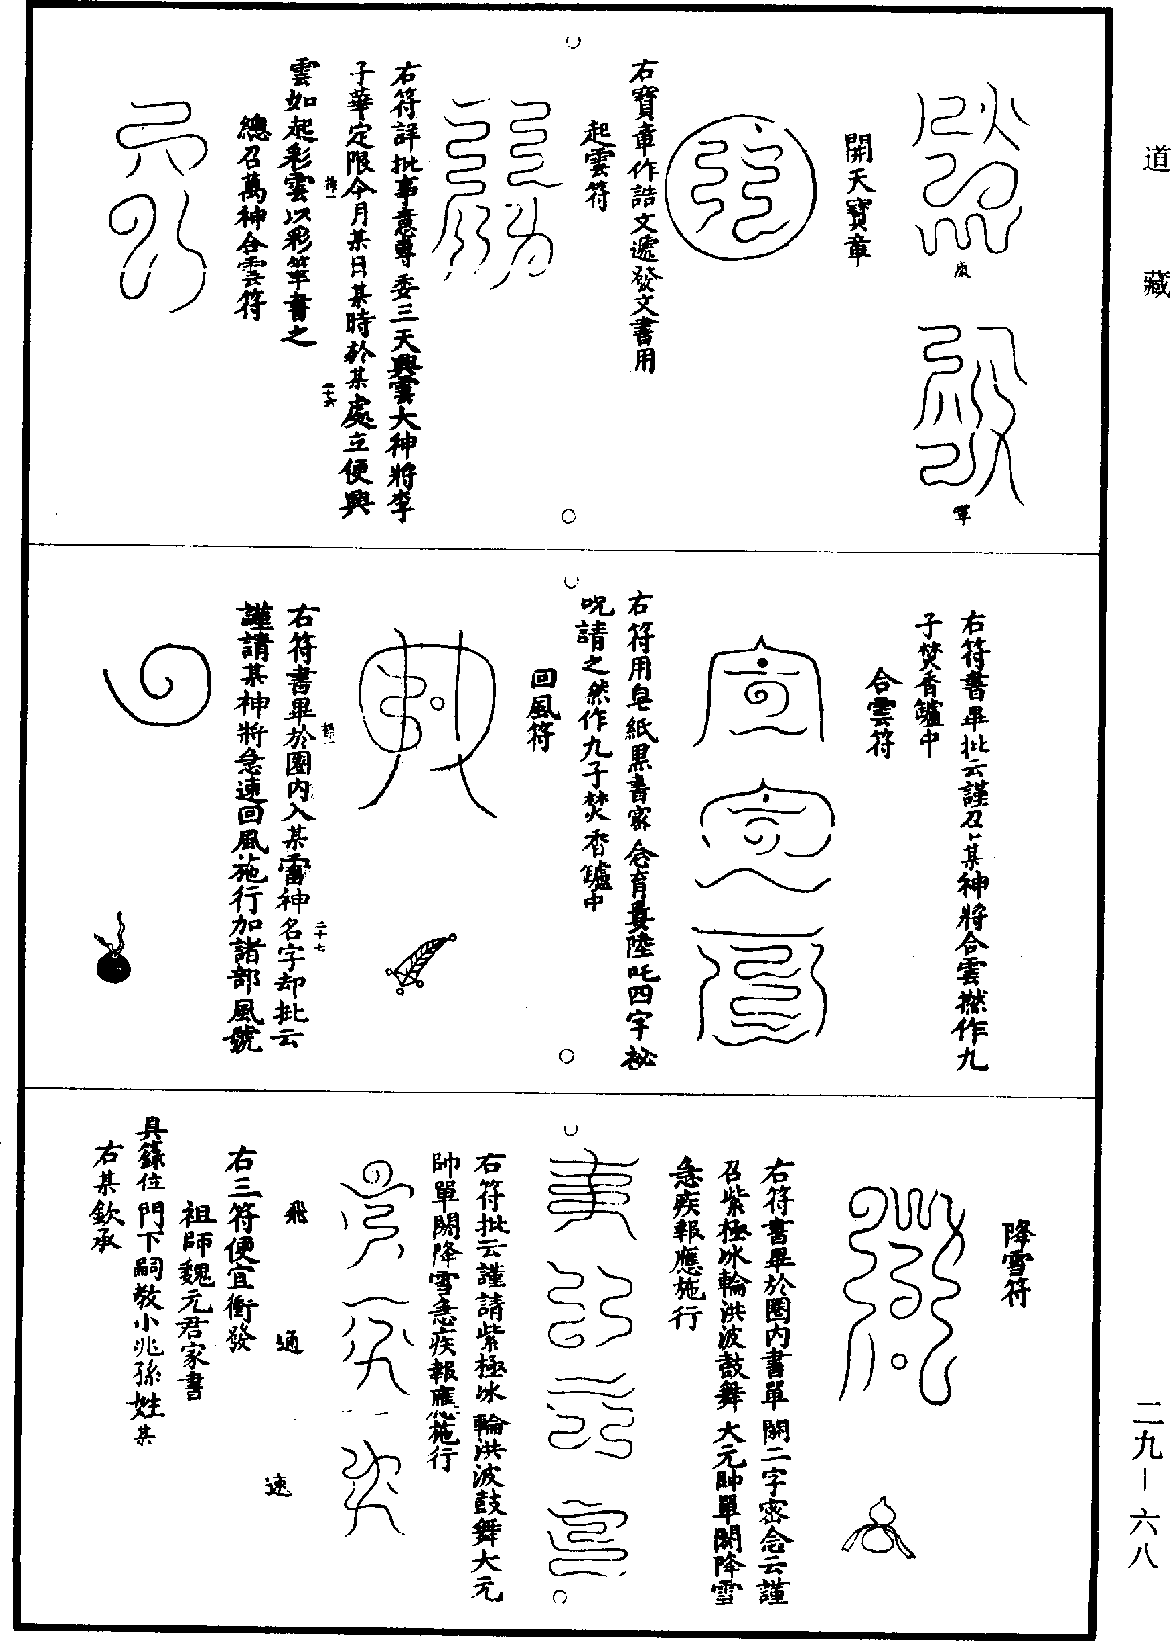 道藏
二九—六八
開天寶章
右寶章作誥文遞發文書用
起雲符
右符詳批事意專委三天興雲大神將李
子華定限今月某日某時於某處立便興
雲如起彩雲以彩筆書之
總召萬神合雲符
右符書畢批云謹召上某神將合雲撚作九
子焚香鑪中
合雲符
右符用皂紙黑書密念育㫰陸吒四字祕
呪請之然作九子焚香鑪中
回風符
右符書畢於圈内入某雷神名字却批云
謹請某神將急速回風施行加諸部風號
二十七
降雪符
右符書畢於圈内書單關二字密念云謹
召紫極冰輪洪波鼓舞大元帥單關降雪
急疾報應施行
右符批云謹請紫極冰輪洪波鼓舞大元
帥單關降雪急疾報應施行
飛
通
速
右三符便宜衝發
祖師魏元君家書
具籙位門下嗣教小兆孫姓某
右某欽承